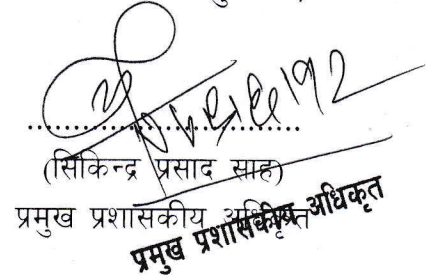 (सिकिन्द्र प्रसाद साह)
प्रमुख प्रशासकीय अधिकृत
प्रमुख प्रशासकीय अधिकृत